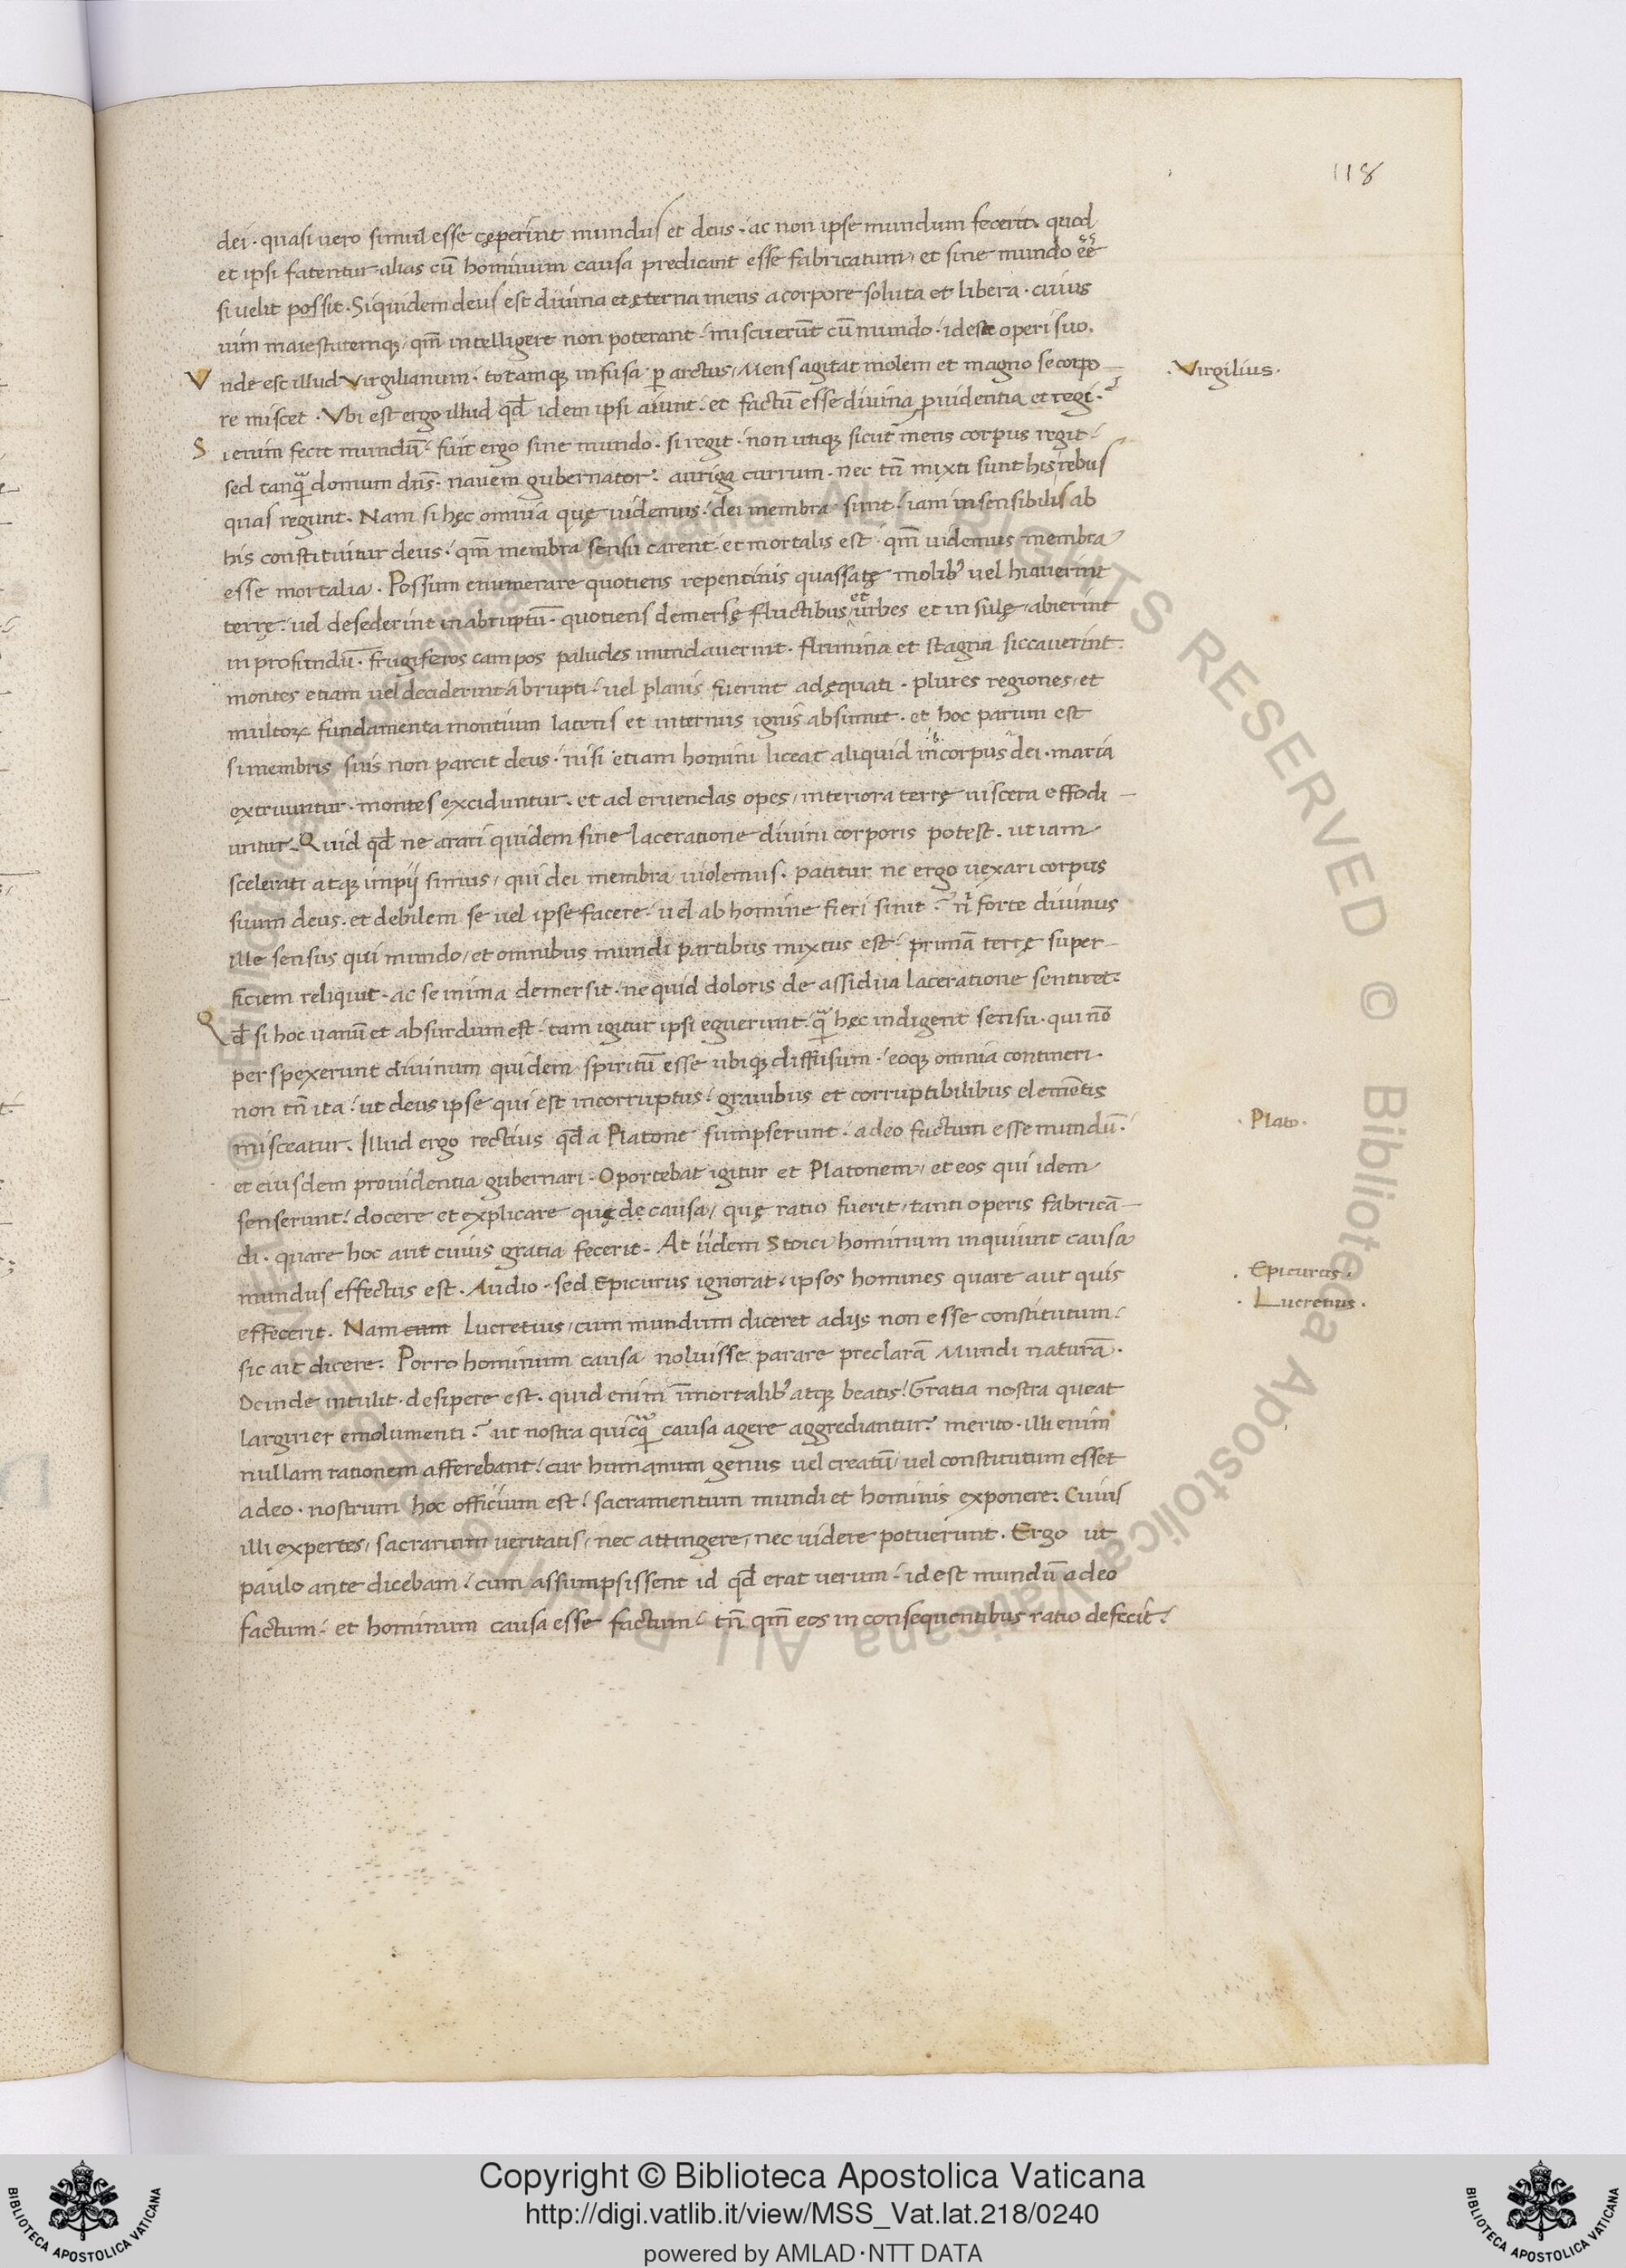 118
dei · quasi uero simul esse cęperint mundus et deus · ac non ipse mundum fecerit · quod
et ipsi fatentur alias cū hominum causa predicant esse fabricatum, et sine mundo eē
si uelit possit · Siquidem deus est diuina et ęterna mens a corpore soluta et libera · cuius
uim maiestatemq; qm̄ intelligere non poterant · miscuerūt cū mundo · id est operi suo.
Vnde est illud Virgilianum · totamq; infusa ꝑ arctus, Mens agitat molem et magno se corpo
re miscet · Vbi est ergo illud qđ idem ipsi aiunt · et factū esse diuina ꝓuidentia et regi ·
Si enim fecit mundū · fuit ergo sine mundo · si regit · non utiq; sicut mens corpus regit ·
sed tanq̃ domum dn̄s · nauem gubernator · auriga currum · nec tn̄ mixti sunt his rebus
quas regunt · Nam si hęc omnia quę uidemus · dei membra sunt · iam insensibilis ab
his constituitur deus · qm̄ membra sensu carent · et mortalis est · qm̄ uidemus membra
esse mortalia · Possum enumerare quotiens repentinis quassatę molib; uel hiauerint
terrę · uel desederint in abruptū · quotiens demersę fluctibus et urbes et insulę abierint
in profundū · frugiferos campos paludes inundauerint · flumina et stagna siccauerint ·
montes etiam uel deciderint abrupti · uel planis fuerint adęquati · plures regiones, et
multoꝝ fundamenta montium latens et internus ignis absumit · et hoc parum est
si membris suis non parcit deus · nisi etiam homini liceat aliquid in corpus dei · maria
extruuntur · montes exciduntur · et ad eruendas opes, interiora terrę uiscera effodi
untur · Quid qđ ne arari quidem sine laceratione diuini corporis potest · ut iam
scelerati atq; impij simus, qui dei membra uiolemus · patitur ne ergo uexari corpus
suum deus · et debilem se uel ipse facere · uel ab homine fieri sinit? nͥ forte diuinus
ille sensus qui mundo, et omnibus mundi partibus mixtus est · primā terrę super
ficiem reliquit · ac se in ima demersit · ne quid doloris de assidua laceratione sentiret ·
Qđ si hoc uanū et absurdum est · tam igitur ipsi eguerunt · q̃ hęc indigent sensu · qui nō
perspexerunt diuinum quidem spiritū esse ubiq; diffusum · eoq; omnia contineri ·
non tn̄ ita · ut deus ipse qui est incorruptus · grauibus et corruptibilibus elemētis
misceatur · Illud ergo rectius qđ a Platone sumpserunt · a deo factum esse mundū ·
et eiusdem prouidentia gubernari · Oportebat igitur et Platonem, et eos qui idem
senserunt · docere et explicare quę de causa, quę ratio fuerit, tanti operis fabricā
di · quare hoc aut cuius gratia fecerit · At iidem Stoici hominum inquiunt causa
mundus effectus est · Audio · sed Epicurus ignorat, ipsos homines quare aut quis
effecerit · Nam cum Lucretius, cum mundum diceret a dijs non esse constitutum ·
sic ait dicere · Porro hominum causa noluisse parare preclarā Mundi naturā ·
Deinde intulit · desipere est · quid enim īmortalib; atq; beatis · Gratia nostra queat
largirier emolumenti? ut nostra quicq̃ causa agere aggrediantur? merito · illi enim
nullam rationem afferebant · cur humanum genus uel creatū, uel constitutum esset
a deo · nostrum hoc officium est · sacramentum mundi et hominis exponere · Cuius
illi expertes, sacrarium ueritatis, nec attingere, nec uidere potuerunt · Ergo ut
paulo ante dicebam · cum assumpsissent id qđ erat uerum · id est mundū a deo
factum · et hominum causa esse factum · tn̄ qm̄ eos in consequentibus ratio defecit ·
· Virgilius ·
· Plato ·
· Epicurus ·
· Lucretius ·
© Biblioteca Apostolica Vaticana ALL RIGHTS RESERVED © Biblioteca Apostolica Vaticana ALL RIGHTS RESERVED
Copyright © Biblioteca Apostolica Vaticana
http://digi.vatlib.it/view/MSS_Vat.lat.218/0240
powered by AMLAD·NTT DATA
BIBLIOTECA APOSTOLICA VATICANA
BIBLIOTECA APOSTOLICA VATICANA